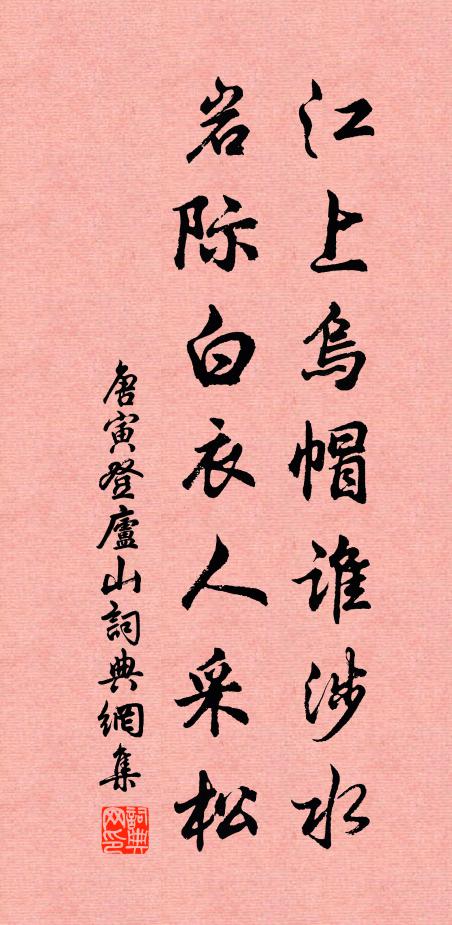 江上烏帽谁涉水
岩际白衣人采松
唐寅登廬山詞典網集
詞典网印